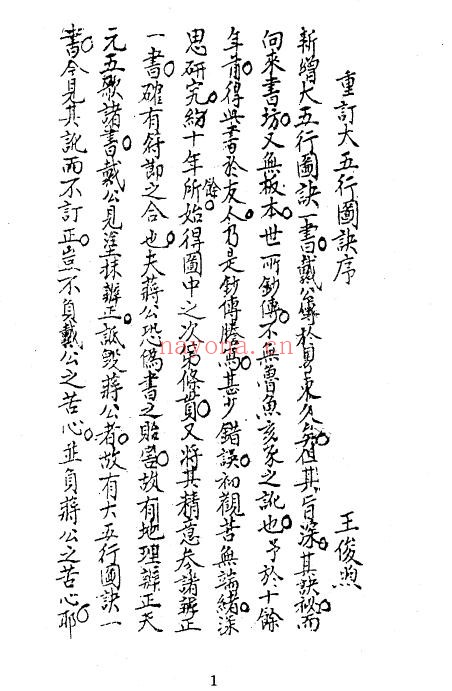 重訂大五行圖訣序
王俊煦
新增大五行圖訣一書戴公傳於粵東久矣但其旨深其訣秘而
向來書坊又無板本世所鈔傳不無魯魚亥豕之訛也予於十餘
年前得此書於友人乃是鈔傳謄寫甚少錯誤初觀苦無端緒深
思研究約十年所餘始得圖中之次第條貫又將其精意參諸辨正
一書確有符節之合也夫蔣公恐偽書之貽害故有地理辨正天
元五歌諸書戴公見塗抹辨正詆毀蔣公者故有大五行圖訣一
書今見其訛而不訂正豈不負戴公之苦心並負蔣公之苦心耶
nayona.cn
1